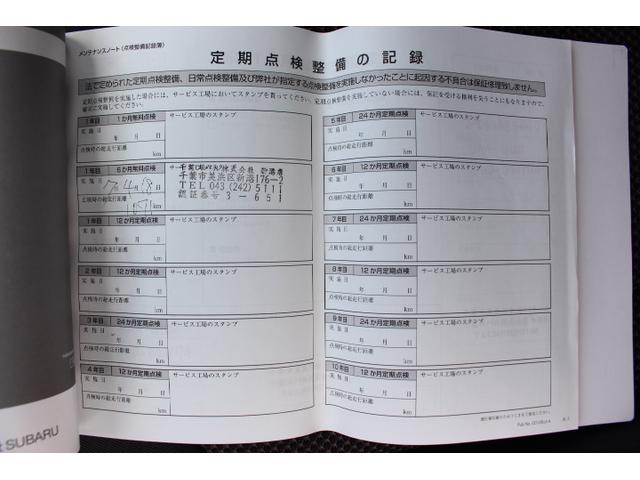 メンテナンスノート（点検整備記録簿）
定期点検整備の記録
法で定められた定期点検整備、日常点検整備及び弊社が指定する点検整備を実施しなかったことに起因する不具合は保証修理致しません。
定期点検整備を実施した場合には、サービス工場においてスタンプを貰ってください。定期点検整備を実施していない場合には、保証を受ける権利を失うことにもなりますので、
確実に実施してください。
1年目 1か月無料点検 サービス工場のスタンプ
実施日
年 月 日
点検時の総走行距離
km
1年目 6か月無料点検 サービス工場のスタンプ
実施日
点検時の総走行距離
km
千葉市美浜区新港176-2
TEL 043 (242) 5111
認証番号 3-651
1年目 12か月定期点検 サービス工場のスタンプ
実施日
年 月 日
点検時の総走行距離
km
2年目 12か月定期点検 サービス工場のスタンプ
実施日
年 月 日
点検時の総走行距離
km
3年目 24か月定期点検 サービス工場のスタンプ
実施日
年 月 日
点検時の総走行距離
km
4年目 12か月定期点検 サービス工場のスタンプ
実施日
年 月 日
点検時の総走行距離
km
5年目 24か月定期点検 サービス工場のスタンプ
実施日
年 月 日
点検時の総走行距離
km
6年目 12か月定期点検 サービス工場のスタンプ
実施日
年 月 日
点検時の総走行距離
km
7年目 24か月定期点検 サービス工場のスタンプ
実施日
年 月 日
点検時の総走行距離
km
8年目 12か月定期点検 サービス工場のスタンプ
実施日
年 月 日
点検時の総走行距離
km
9年目 24か月定期点検 サービス工場のスタンプ
実施日
年 月 日
点検時の総走行距離
km
10年目 12か月定期点検 サービス工場のスタンプ
実施日
年 月 日
点検時の総走行距離
km
SUBARU